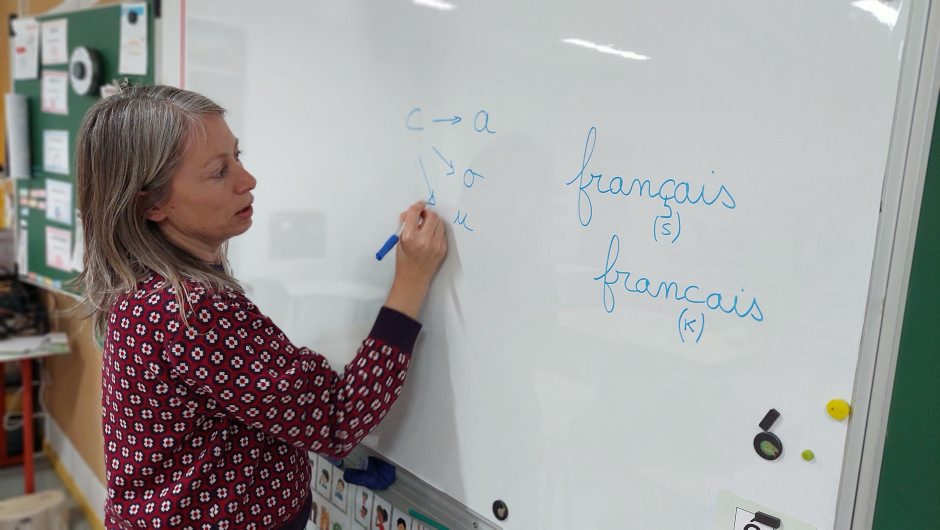 c → a
o
u
français
(s)
francais
(k)